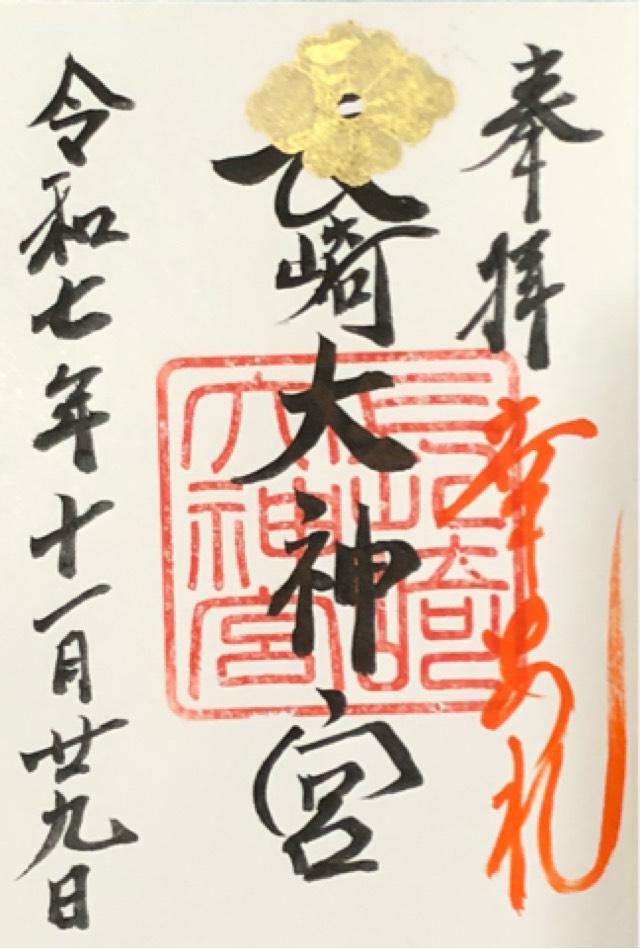 奉拝
幸あれ
長崎大神宮
長崎
大神宮
令和七年十一月廿九日